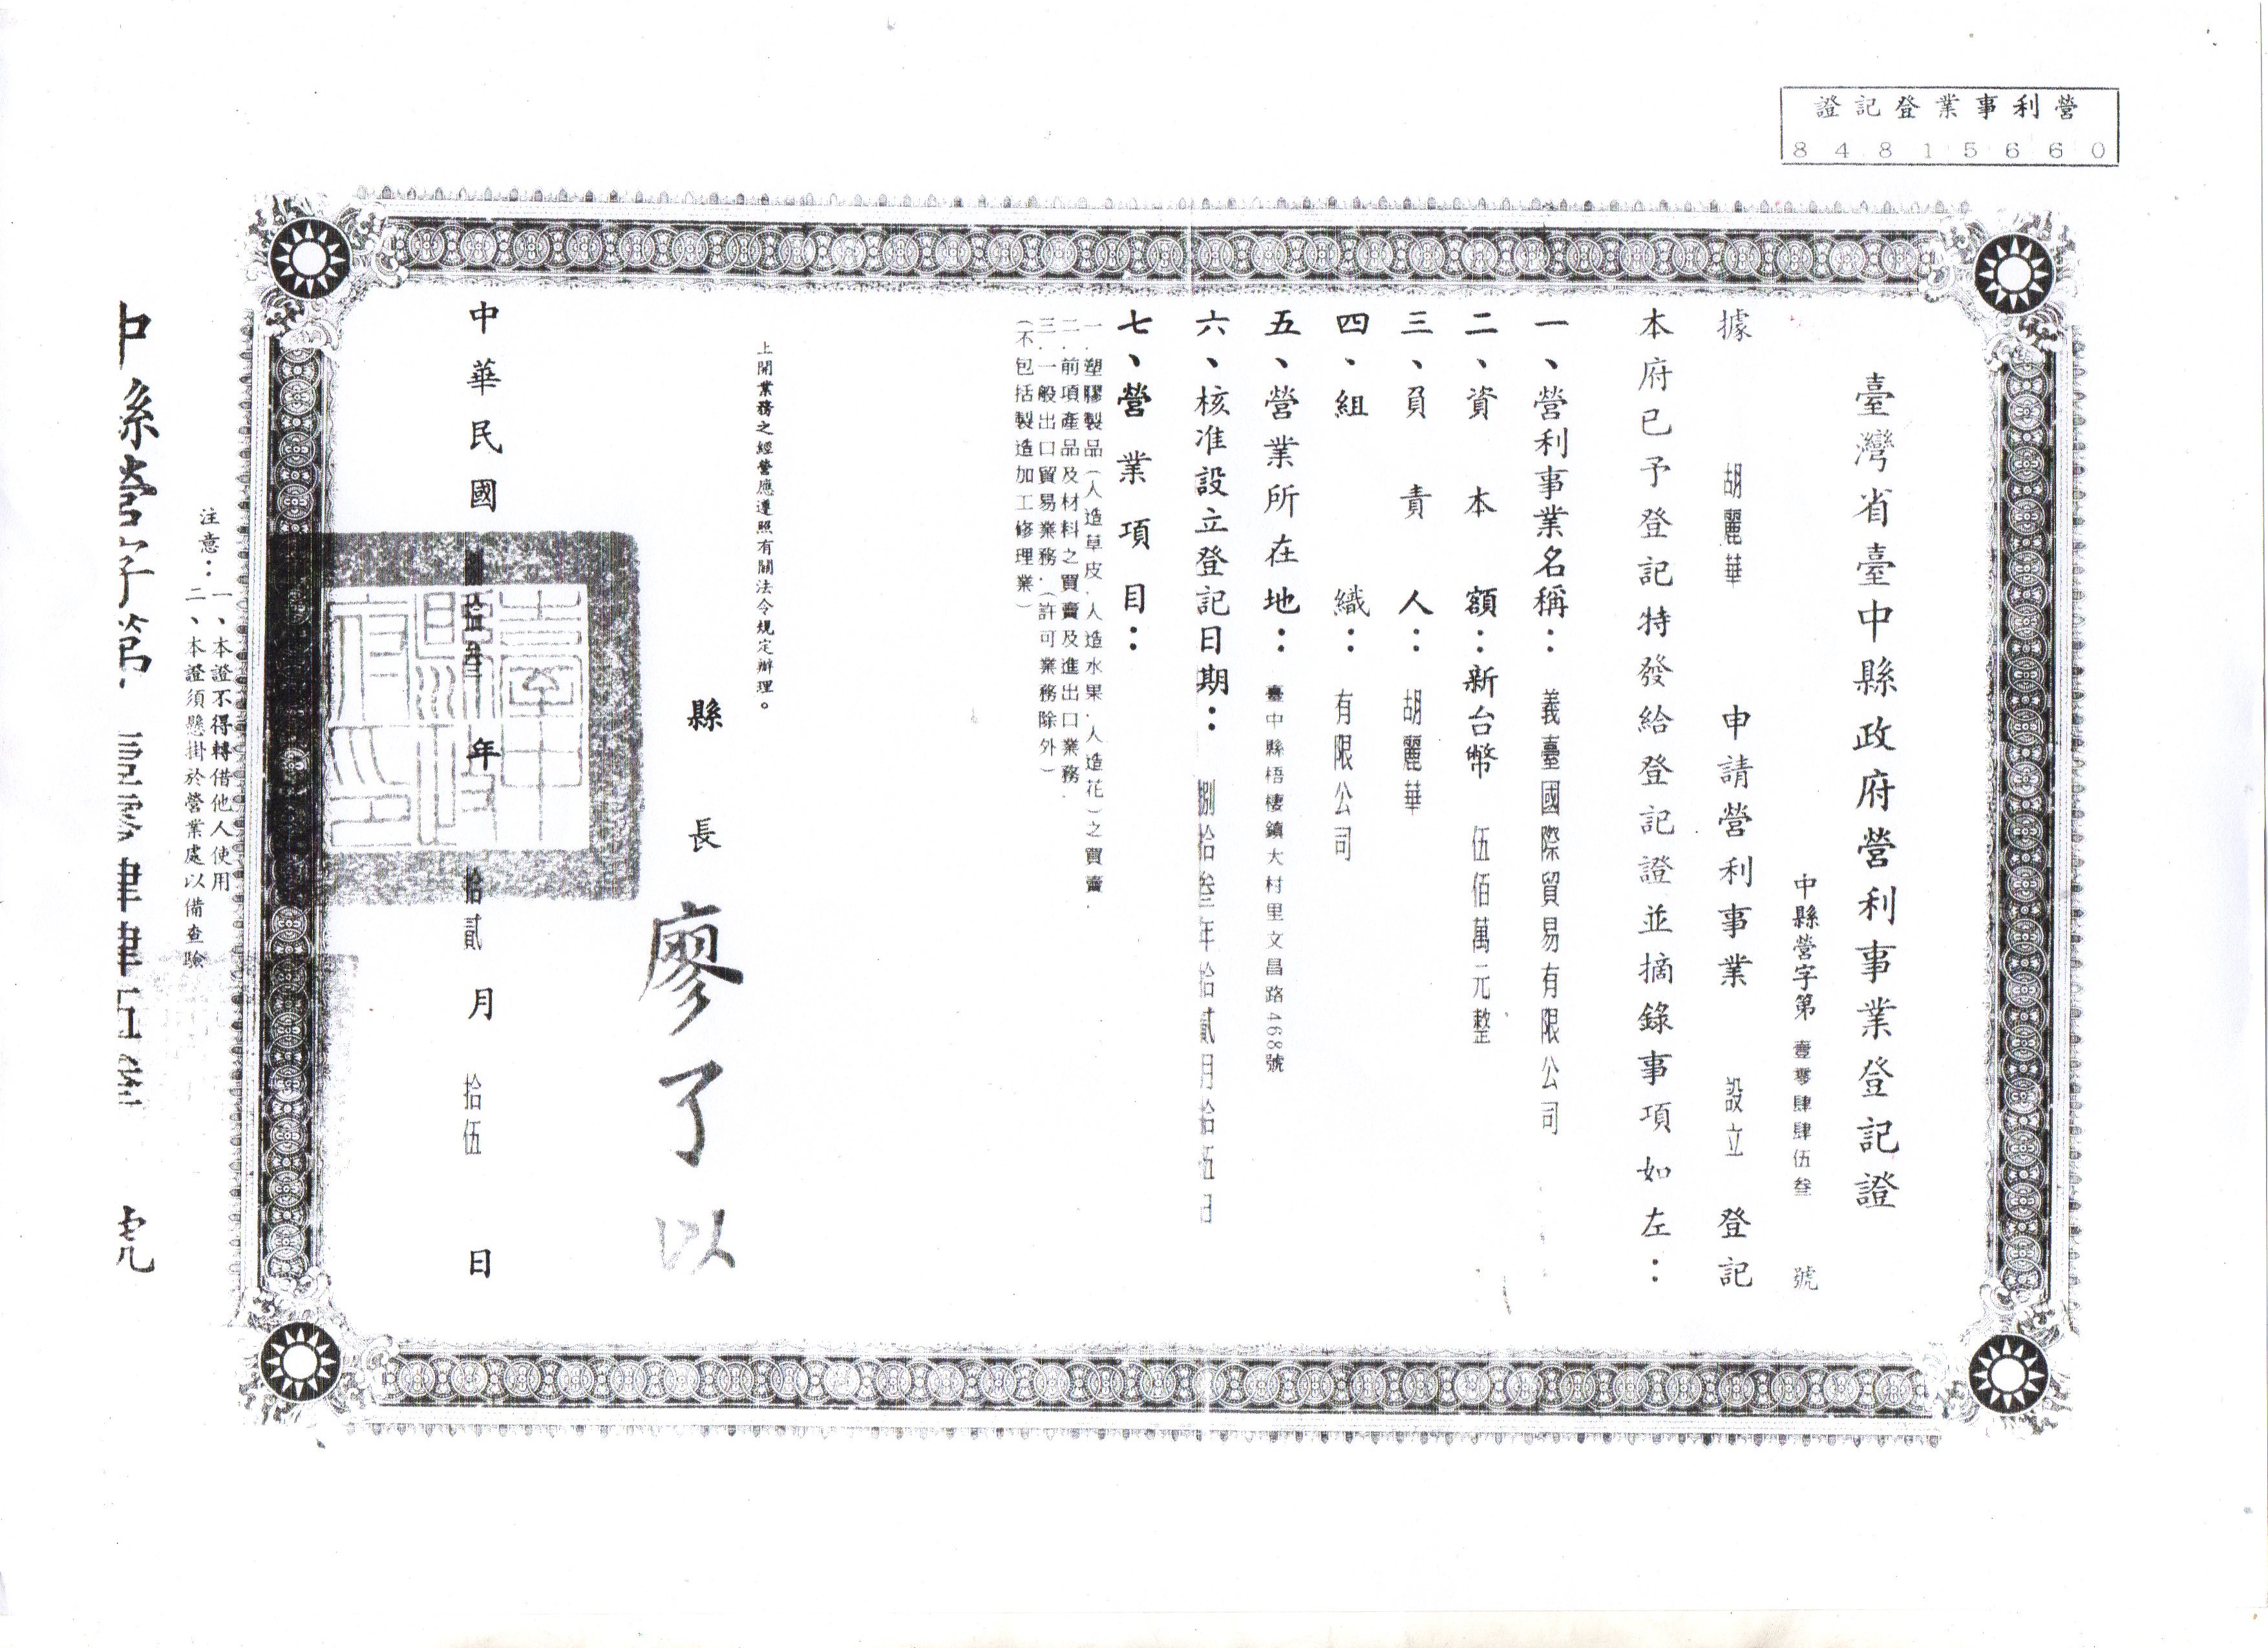 營利事業登記證
84815660
臺灣省臺中縣政府營利事業登記證
中縣營字第 壹零肆肆伍叁 號
據 胡麗華 申請營利事業 設立 登記
本府已予登記特發給登記證並摘錄事項如左：
一、營利事業名稱：義臺國際貿易有限公司
二、資本額：新台幣 伍佰萬元整
三、負責人：胡麗華
四、組織：有限公司
五、營業所在地：臺中縣梧棲鎮大村里文昌路468號
六、核准設立登記日期：捌拾叁年拾貳月拾伍日
七、營業項目：
一.塑膠製品(人造草皮.人造水果.人造花)之買賣.
二.前項產品及材料之買賣及進出口業務.
三.一般出口貿易業務.(許可業務除外)
(不包括製造加工修理業)
上開業務之經營應遵照有關法令規定辦理。
縣長 廖了以
中華民國 捌拾叁 年 拾貳 月 拾伍 日
注意：一、本證不得轉借他人使用
二、本證須懸掛於營業處以備查驗
中縣營字第 壹零肆肆伍叁 號